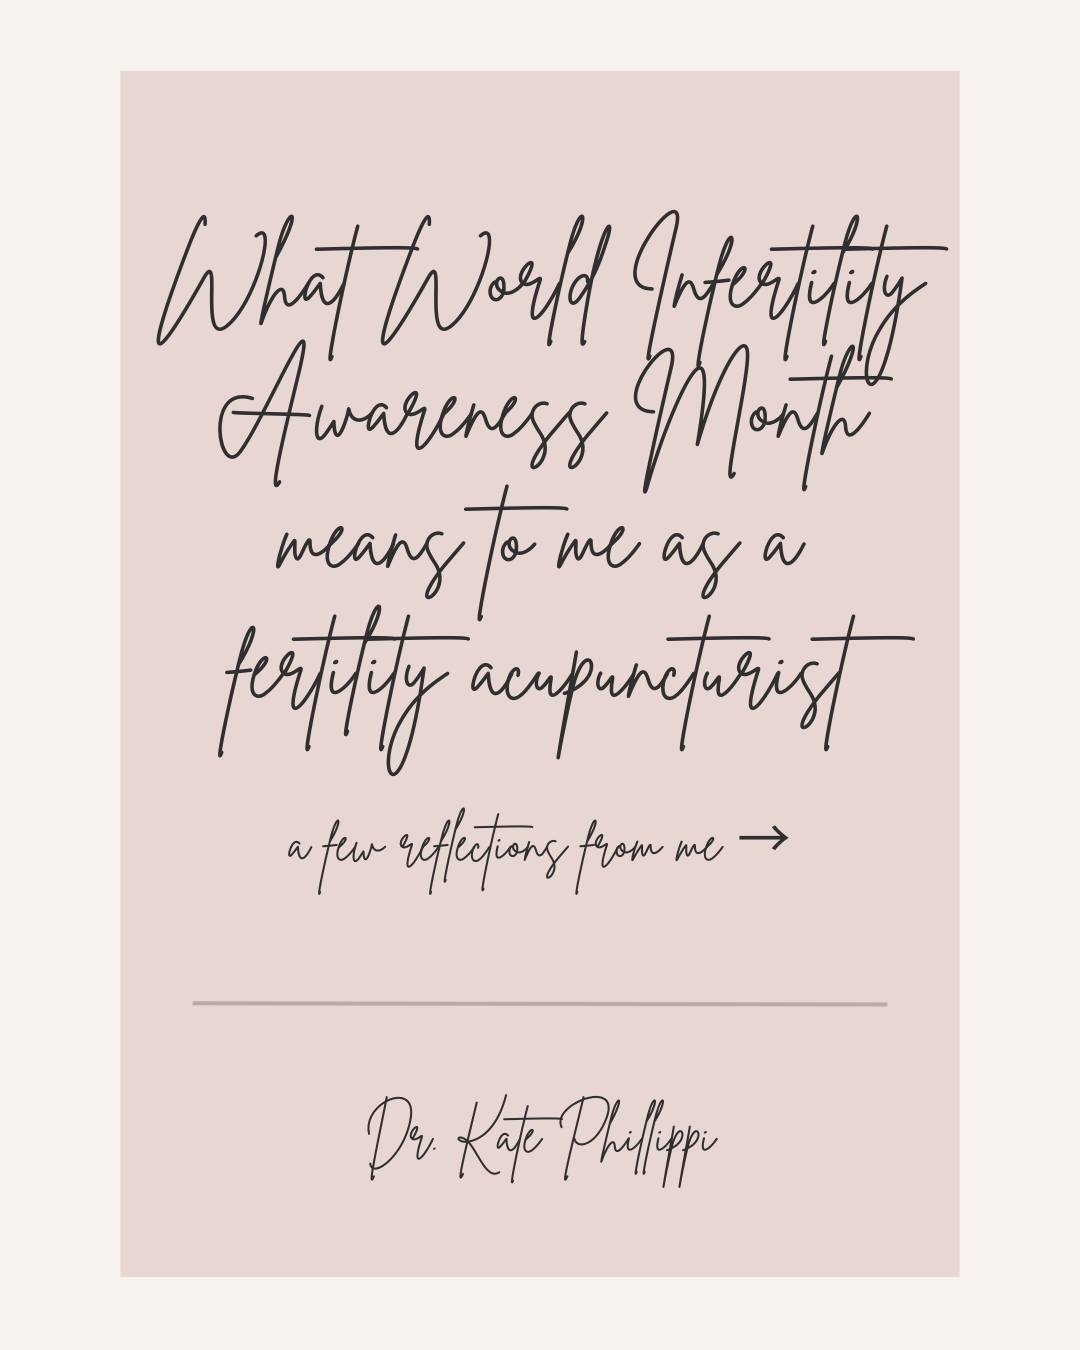 What World Infertility
Awareness Month
means to me as a
fertility acupuncturist
a few reflections from me →
Dr. Kate Phillippi